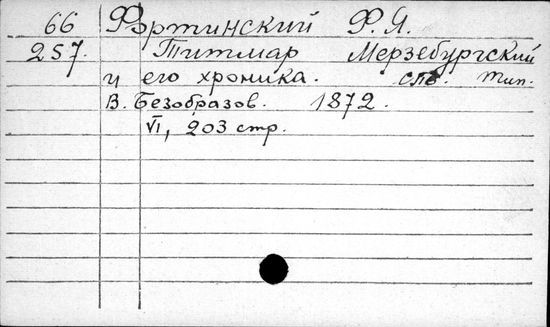 66 Фортинский Ф. Я.
257. Титмар Мерзебургский
и его хроника. спб. тип.
В. Безобразов. 1872.
VI, 203 стр.